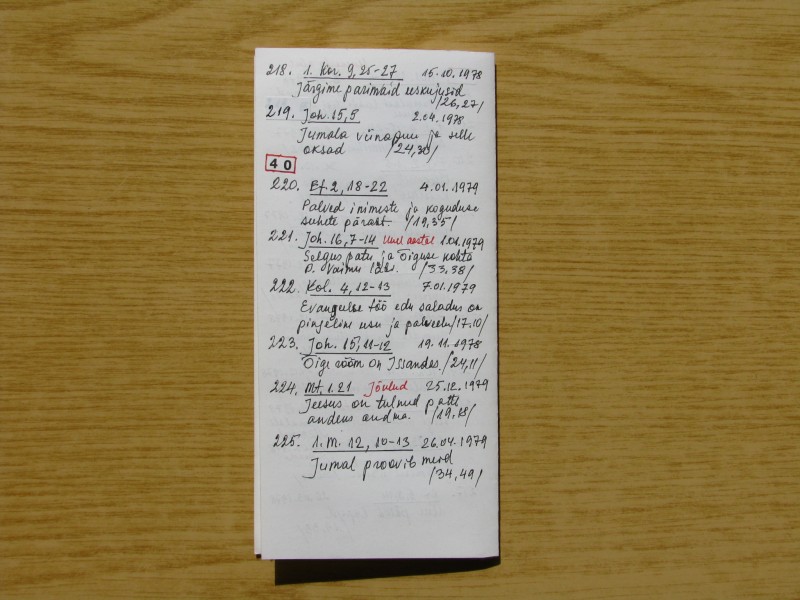 218. 1. Kor. 9, 25-27 15.10.1978
Järgime parimaid eeskujusid
/26,27/
219. Joh. 15,5 2.04.1978
Jumala viinapuu ja selle
oksad /24,30/
40
220. Ef. 2, 18-22 4.01.1979
Palved inimeste ja koguduse
suhete pärast. /19,35/
221. Joh. 16, 7-14 Uuel aastal 1.01.1979
Selgus patu ja õiguse kohta
P. Vaimu läbi. /33,38/
222. Kol. 4, 12-13 7.01.1979
Evangeelse töö edu saladus on
pingeline usu ja palveelu /17.10/
223. Joh. 15, 11-12 19.11.1978
Õige rõõm on Issandas. /24,11/
224. Mt. 1.21 Jõulud 25.12.1979
Jeesus on tulnud patte
andeks andma. /19,18/
225. 1. M. 12, 10-13 26.04.1979
Jumal proovib meid
/34,49/